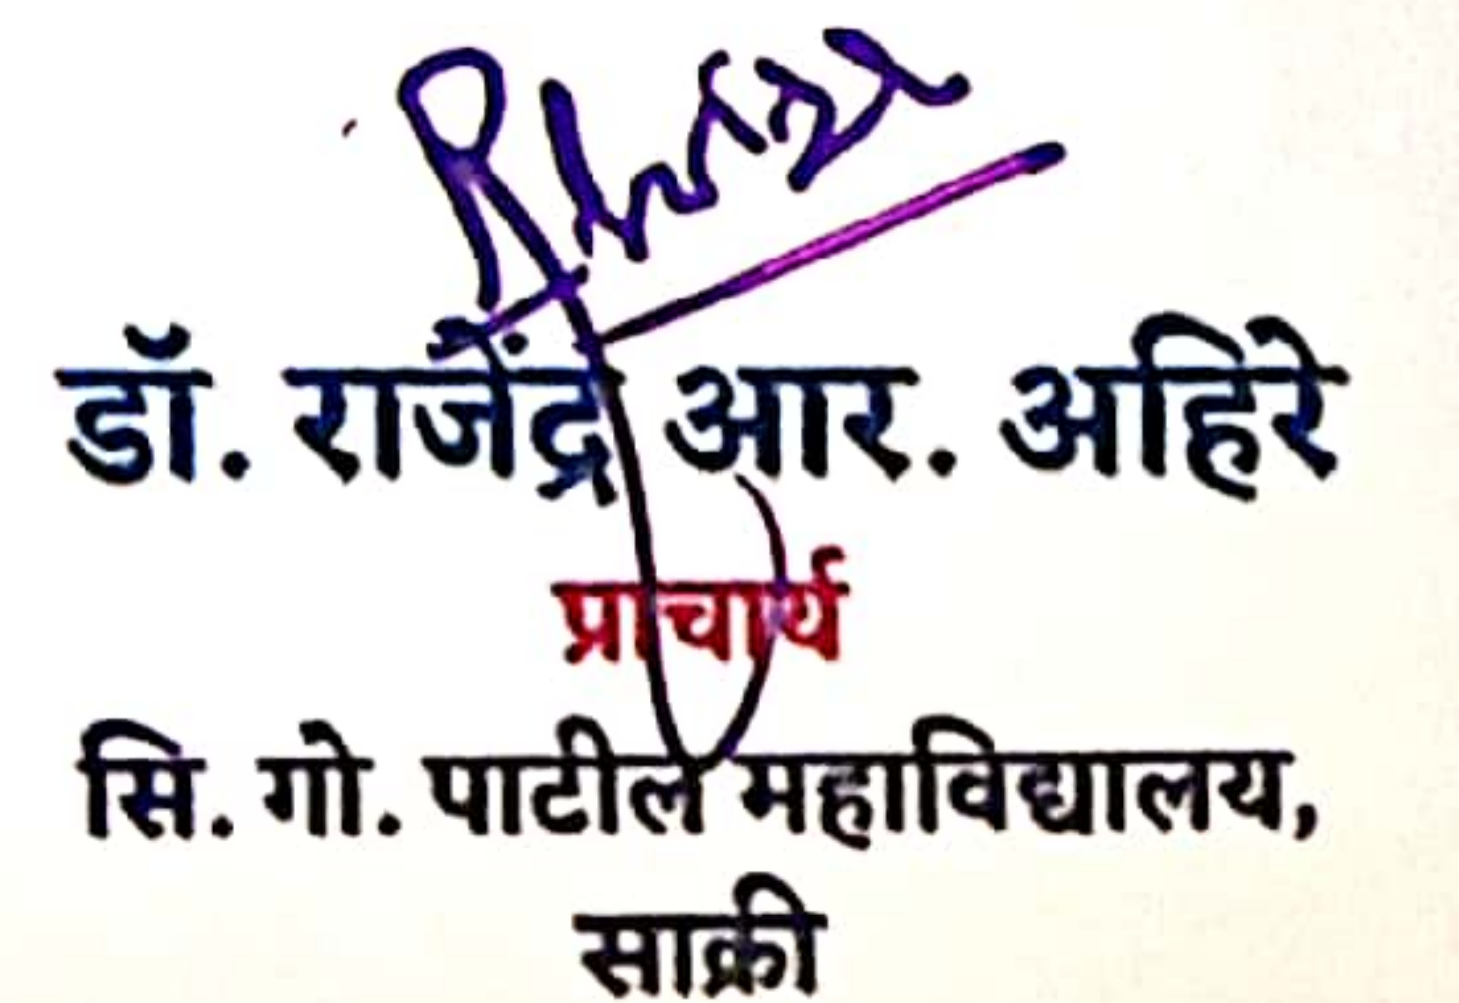 डॉ. राजेंद्र आर. अहिरे
प्राचार्य
सि. गो. पाटील महाविद्यालय,
साक्री